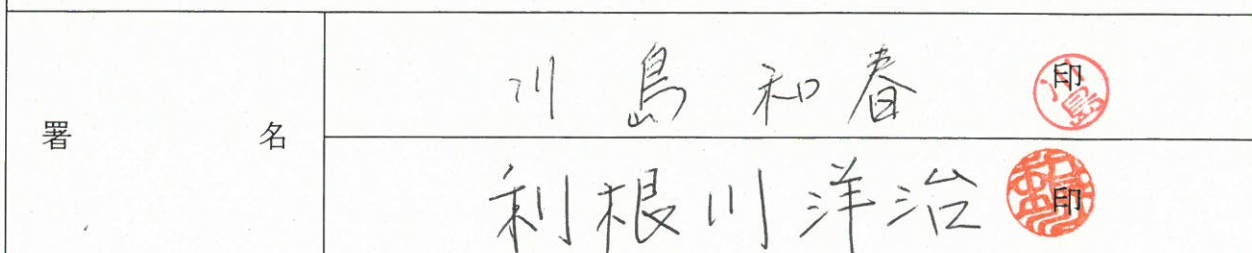 署名
川島和春 印
利根川洋治 印